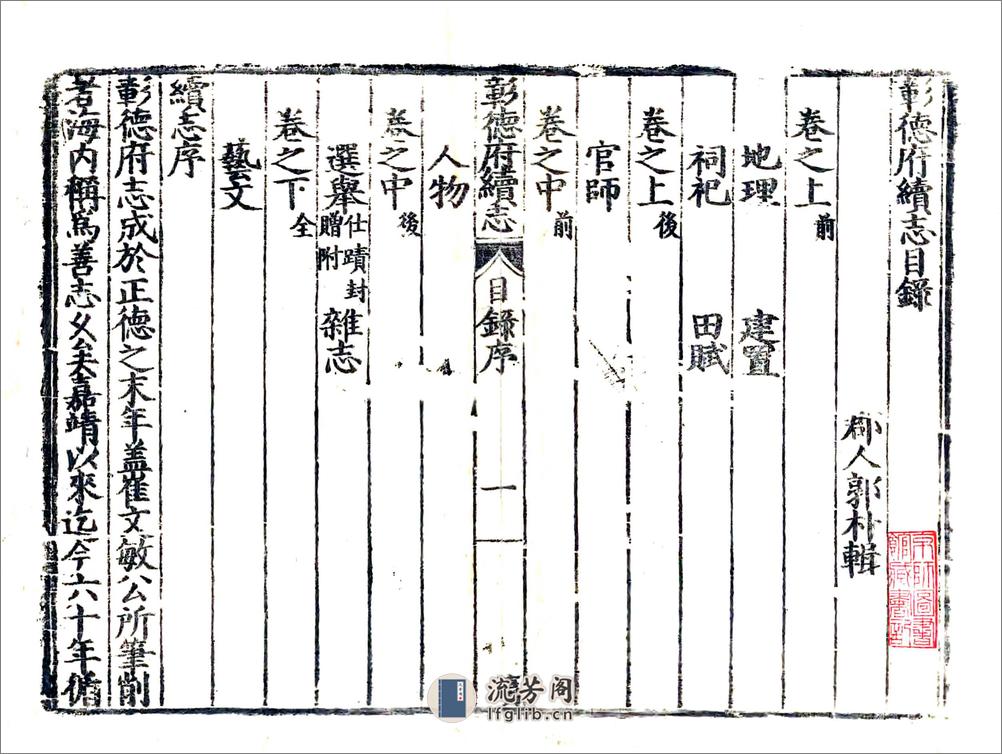 彰德府續志目錄
京師圖書
館藏書記
郡人郭朴輯
卷之上前
地理 建置
祠祀 田賦
卷之上後
官師
卷之中前
彰德府續志 目錄序 一
人物
卷之中後
選舉仕蹟封贈附 雜志
卷之下全
藝文
續志序
彰德府志成於正德之末年盖崔文敏公所筆削
者海内稱為善志久矣嘉靖以來迄今六十年
流芳阁
lfglib.cn